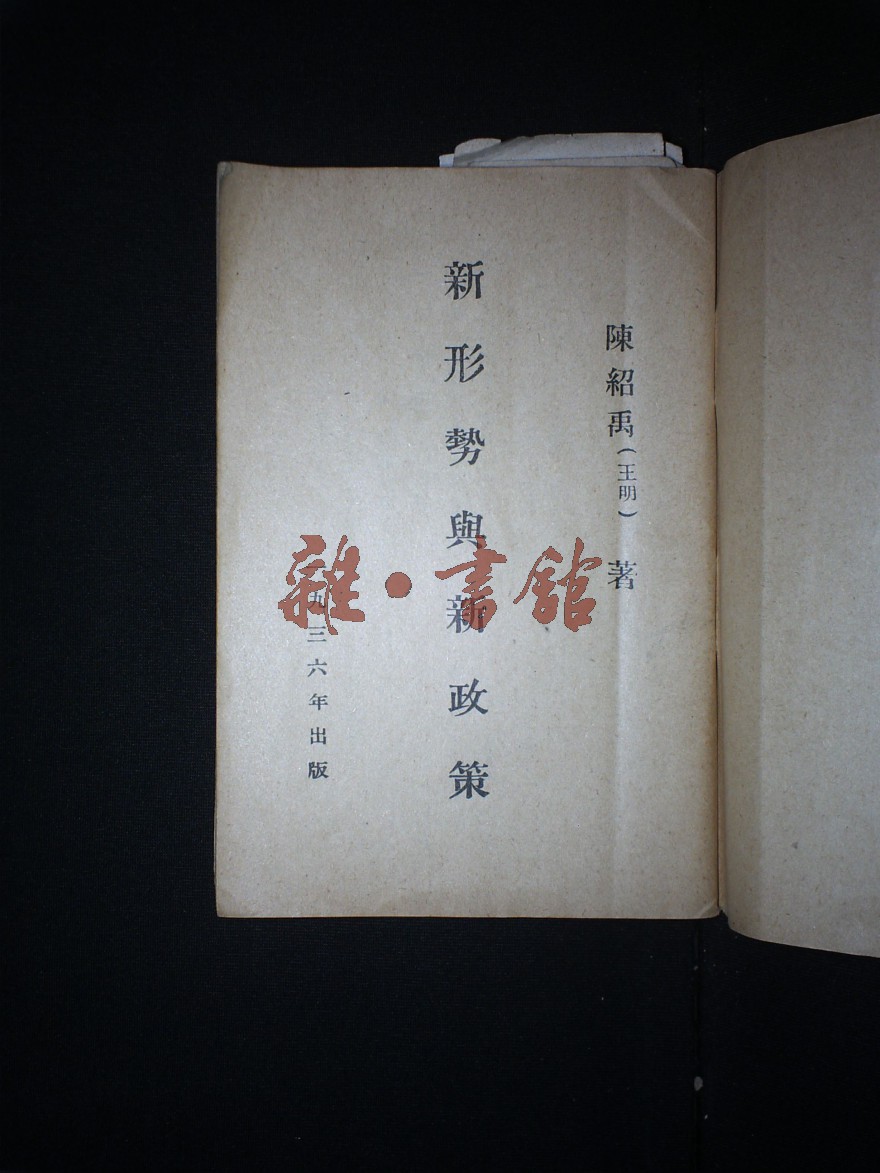 陳紹禹(王明) 著
新形勢與新政策
一九三六年出版
雜·書館